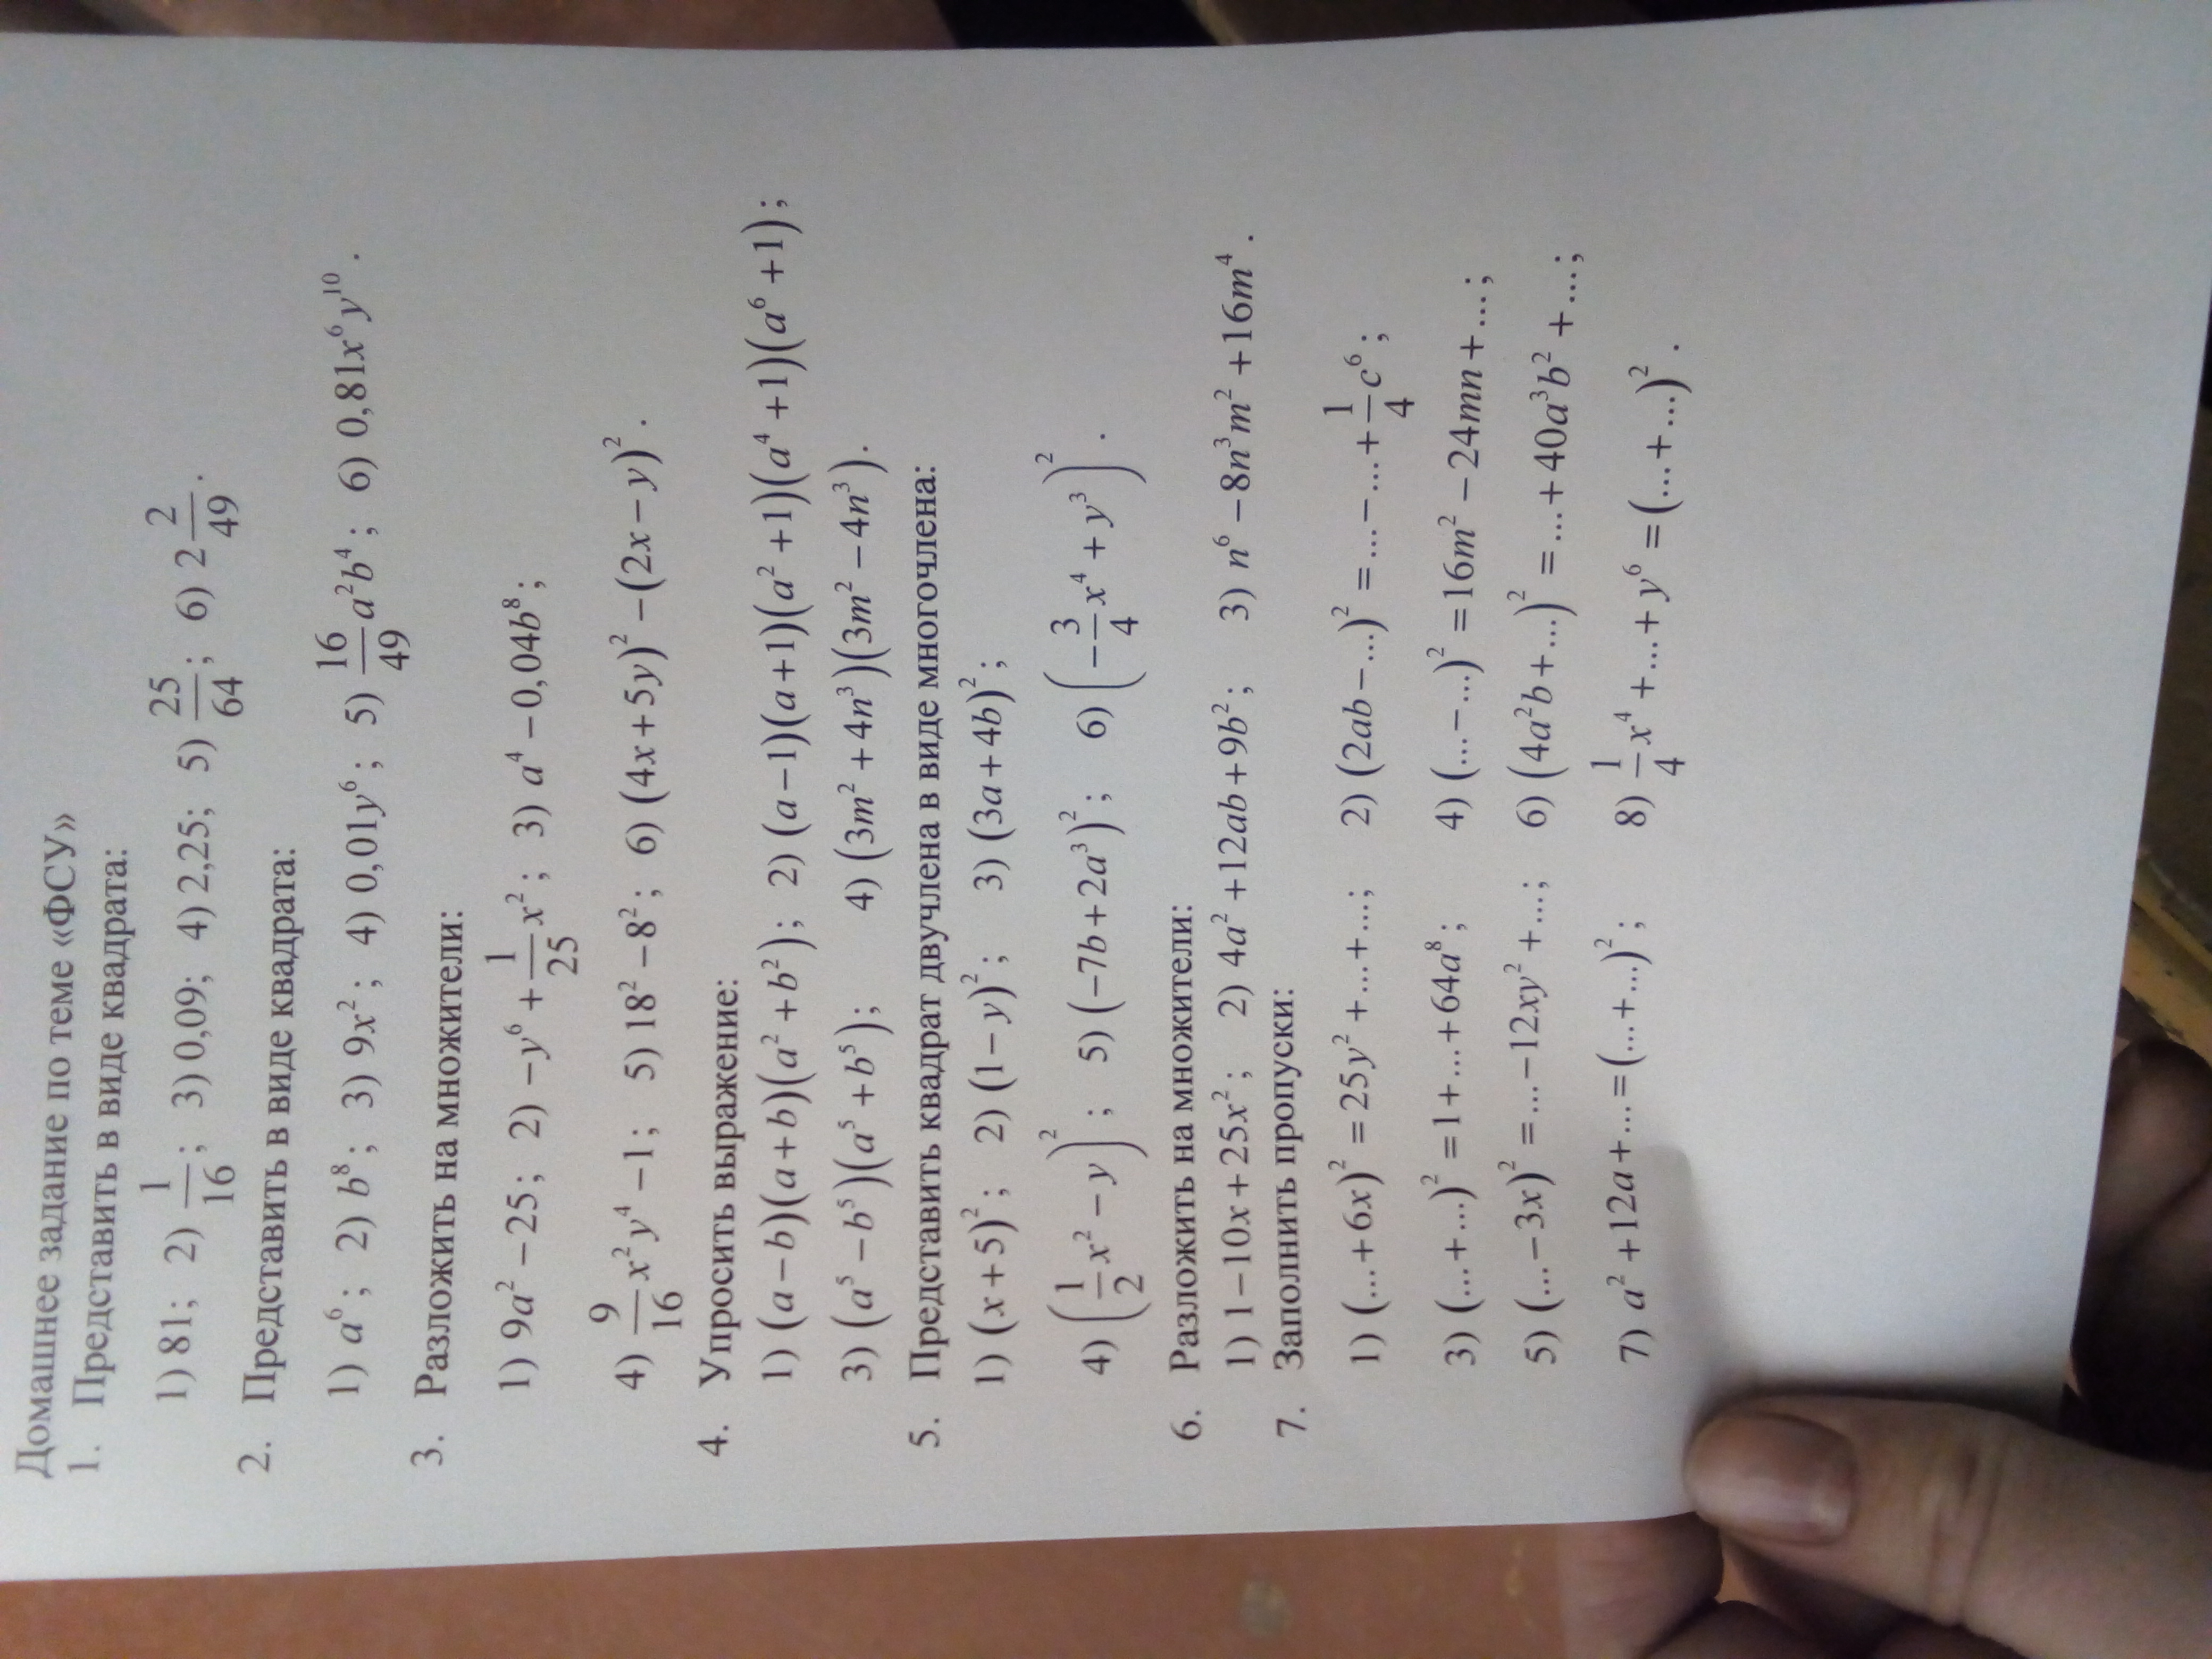 Домашнее задание по теме «ФСУ»
1. Представить в виде квадрата:
1) 81; 2) 1/16; 3) 0,09; 4) 2,25; 5) 25/64; 6) 2 2/49.
2. Представить в виде квадрата:
1) a⁶; 2) b⁸; 3) 9x²; 4) 0,01y⁶; 5) 16/49 a²b⁴; 6) 0,81x⁶y¹⁰.
3. Разложить на множители:
1) 9a² − 25; 2) −y⁶ + 1/25 x²; 3) a⁴ − 0,04b⁸;
4) 9/16 x²y⁴ − 1; 5) 18² − 8²; 6) (4x + 5y)² − (2x − y)².
4. Упросить выражение:
1) (a − b)(a + b)(a² + b²); 2) (a − 1)(a + 1)(a² + 1)(a⁴ + 1)(a⁶ + 1);
3) (a⁵ − b⁵)(a⁵ + b⁵); 4) (3m² + 4n³)(3m² − 4n³).
5. Представить квадрат двучлена в виде многочлена:
1) (x + 5)²; 2) (1 − y)²; 3) (3a + 4b)²;
4) (1/2 x² − y)²; 5) (−7b + 2a³)²; 6) (−3/4 x⁴ + y³)².
6. Разложить на множители:
1) 1 − 10x + 25x²; 2) 4a² + 12ab + 9b²; 3) n⁶ − 8n³m² + 16m⁴.
7. Заполнить пропуски:
1) (... + 6x)² = 25y² + ... + ...; 2) (2ab − ...)² = ... − ... + 1/4 c⁶;
3) (... + ...)² = 1 + ... + 64a⁸; 4) (... − ...)² = 16m² − 24mn + ...;
5) (... − 3x)² = ... − 12xy² + ...; 6) (4a²b + ...)² = ... + 40a³b² + ...;
7) a² + 12a + ... = (... + ...)²; 8) 1/4 x⁴ + ... + y⁶ = (... + ...)².